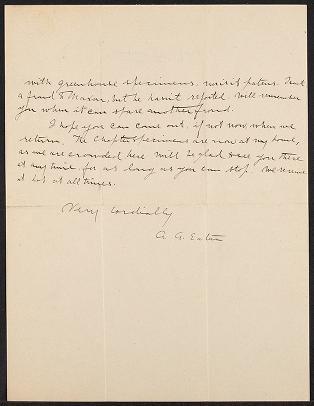 with greenhouse specimens, misit patens. Sent
a frond to Maxon, but he hasn't reported. Will remember
you when it can spare another frond.
I hope you can come out, if not now, when we
return. The specimens are now at my home,
as we are crowded here. Will be glad to see you there
at any time, for as long as you can stop. We
at all times.
Very Cordially
A. G. Eaton